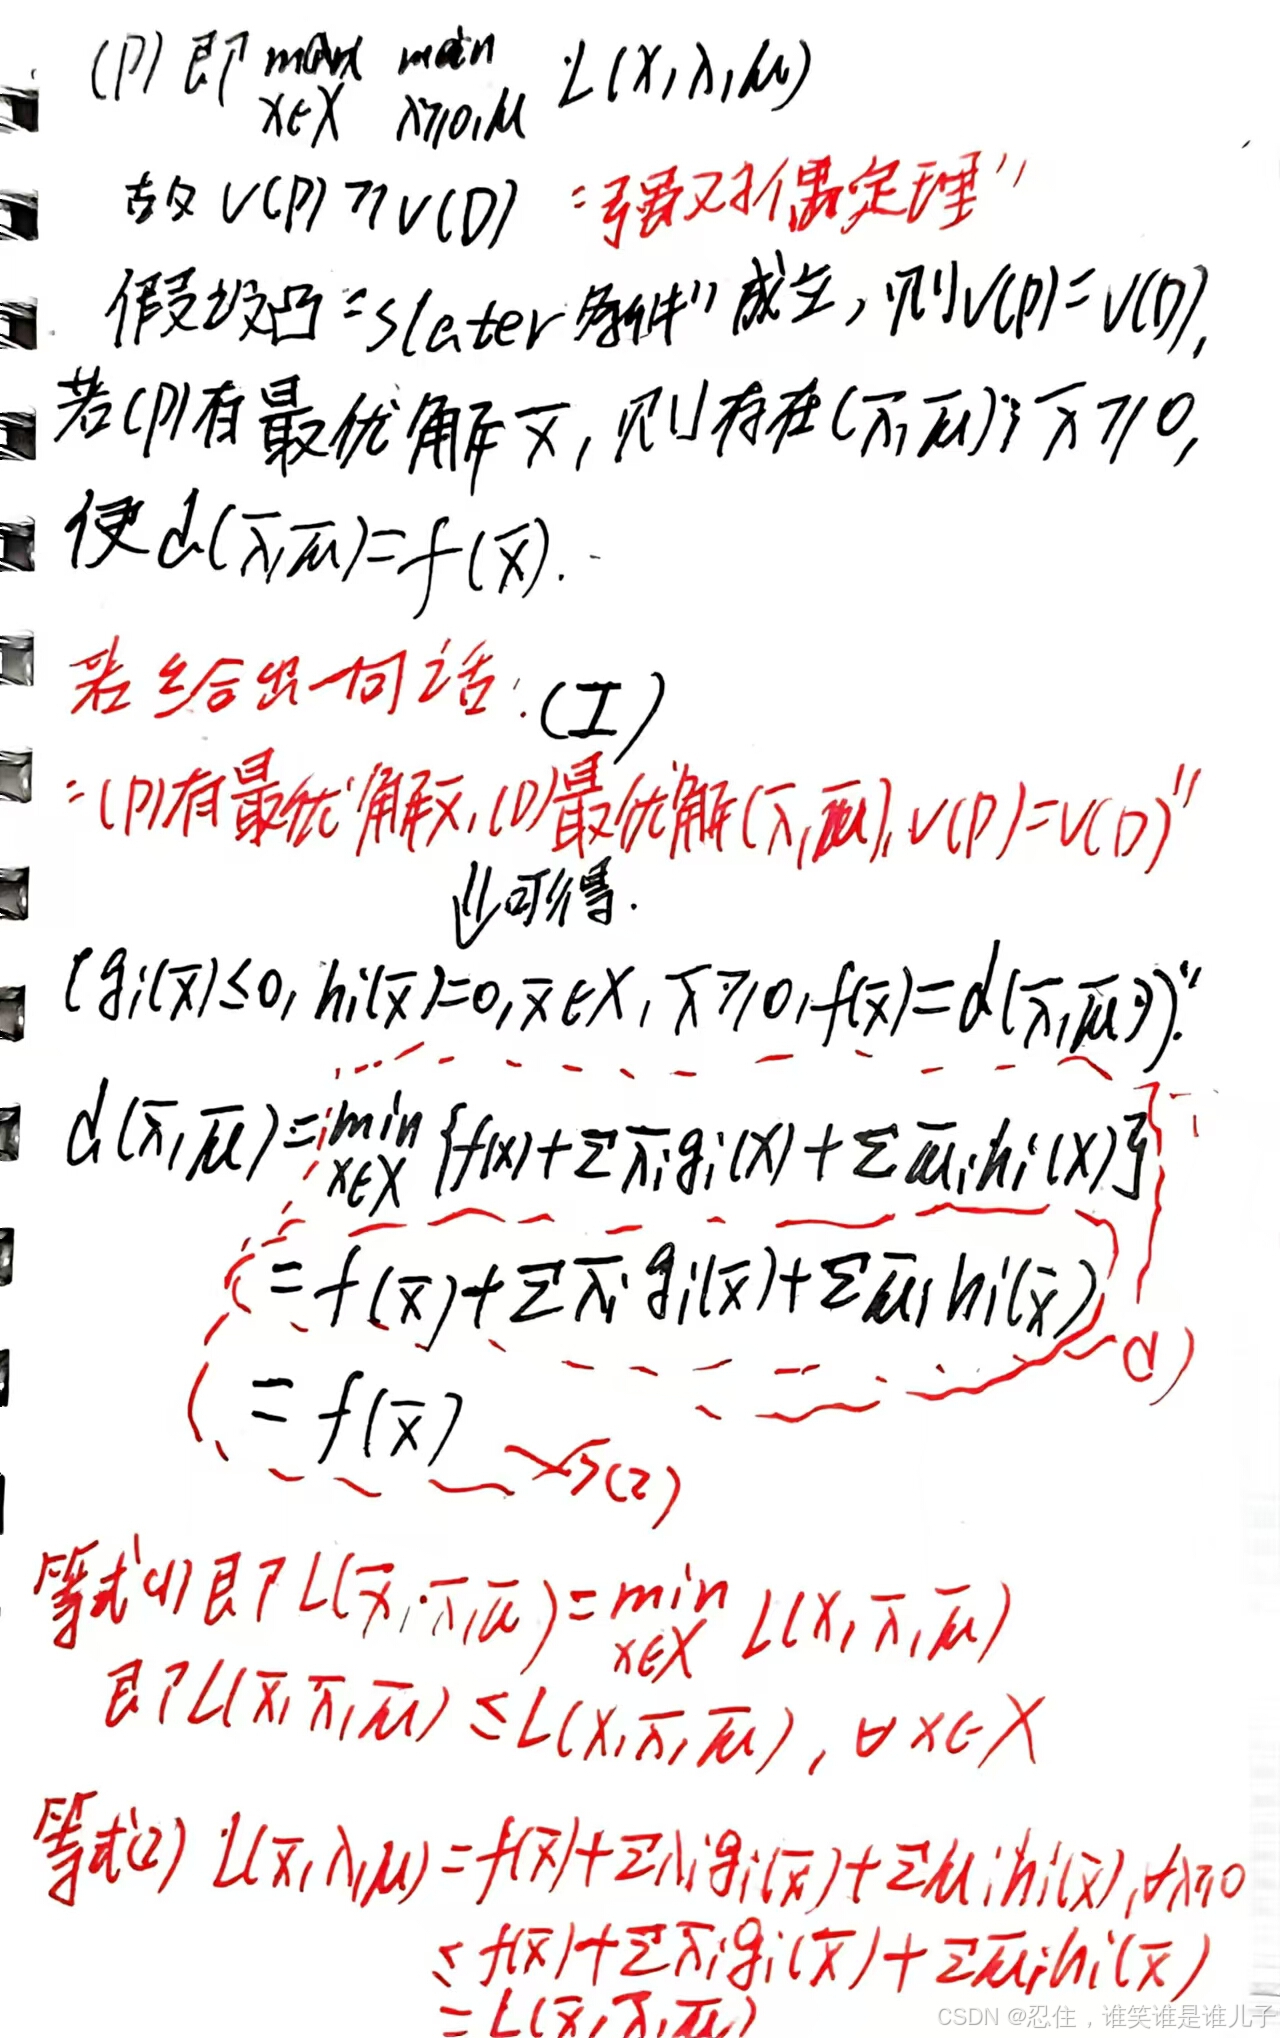 (P)即 max min L(x,λ,μ)
x∈X λ≥0,μ
故 V(P)≥V(D) "强对偶定理"
假设凸"slater条件"成立,则V(P)=V(D),
若(P)有最优解x̄,则存在(λ̄,μ̄);λ̄≥0,
使d(λ̄,μ̄)=f(x̄).
若给出一句话:(I)
"(P)有最优解x̄,(D)最优解(λ̄,μ̄),V(P)=V(D)"
⇓可得.
(gi(x̄)≤0,hi(x̄)=0,x̄∈X,λ̄≥0,f(x̄)=d(λ̄,μ̄))"
d(λ̄,μ̄)=min{f(x)+Σλ̄igi(x)+Σμ̄ihi(x)}
x∈X
=f(x̄)+Σλ̄igi(x̄)+Σμ̄ihi(x̄)
(1)
=f(x̄)
(2)
等式(1)即L(x̄,λ̄,μ̄)=min L(x,λ̄,μ̄)
x∈X
即L(x̄,λ̄,μ̄)≤L(x,λ̄,μ̄),∀x∈X
等式(2) L(x̄,λ,μ)=f(x̄)+Σλigi(x̄)+Σμihi(x̄),∀λ≥0
≤f(x̄)+Σλ̄igi(x̄)+Σμ̄ihi(x̄)
=L(x̄,λ̄,μ̄)
CSDN @忍住，谁笑谁是谁儿子